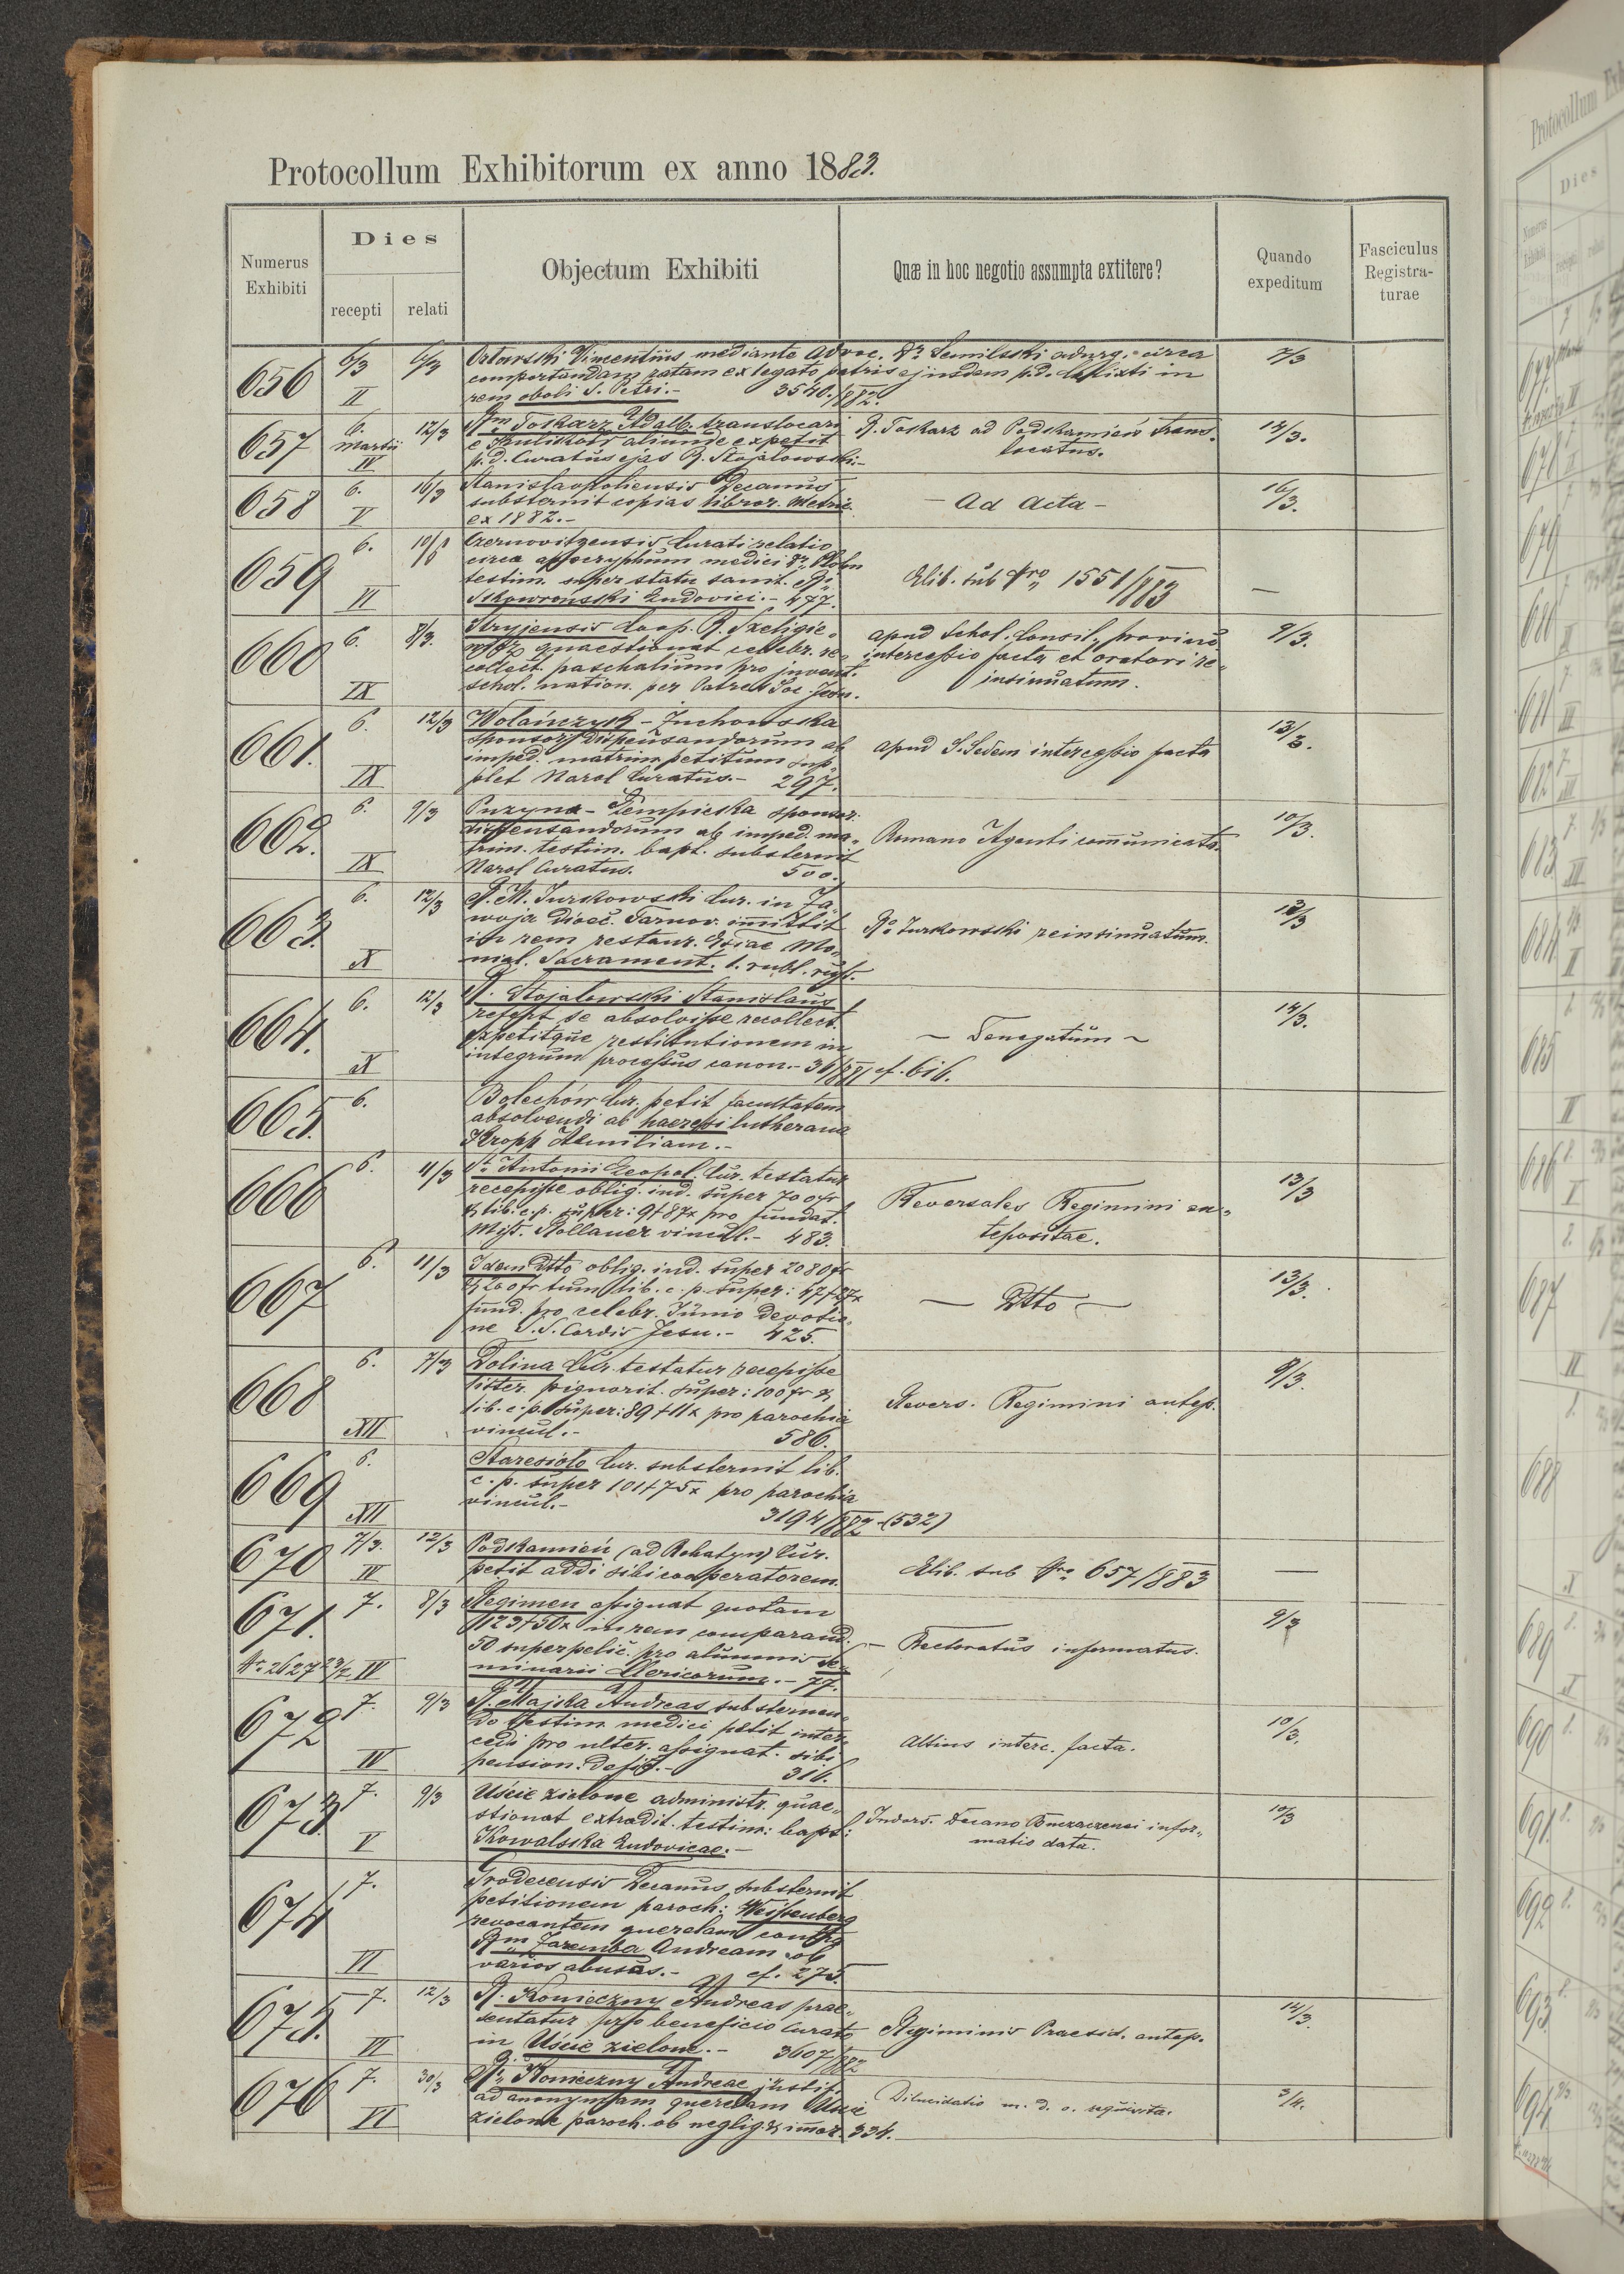 Protocollum Exhibitorum ex anno 1883.
Numerus Exhibiti
Dies
recepti
relati
Objectum Exhibiti
Quæ in hoc negotio assumpta extitere?
Quando expeditum
Fasciculus Registra-
turae
656
6/3
6/3
II
mediante Advoc. Dr. Semilski adurg. circa
comportandam ratam ex legato patris ejusdem p.d. Calixti in
rem oboli S. Petri.- 3540./882.
7/3
657
6.
Martii
IV
12/3
Rm Tokarz Adalb. translocari
e Kulikow aliunde expetit
p.d. Curatus ejas R. Stojalowski.-
R. Tokarz ad Podkamień trans-
locatus.
14/3.
658
6.
V
16/3
Stanislaopoliensis Decanus
substernit copias libror. Metric.
ex 1882.-
- Ad Acta -
16/3.
659
6.
VI
Czernovitzensis Curati relatio
circa apocryphum medici Dr.
testim. super statu sanit. Ri
Skowroński Ludovici.- 477.
Elib. sub Nro 1551/883
—
660
6.
IX
8/3.
Stryjensis Coop. R. Szeligie-
quaestionat celebr. re-
collect. paschalium pro juvent.
schol. nation. per Patres Soc. Jesu.
apud Schol. Consil. provinc.
intercessio facta et oratori re-
insinuatum.
9/3.
661.
6.
IX
12/3
Wolańczyk - Juchowska
sponsor. dispensandorum ab
imped. matrim. petitum sup-
plet Narol Curatus.- 297.
apud S. Sedem intercessio facta
13/3.
662.
6.
IX
9/3
Puzyna - Rempicska sponsor.
dispensandorum ab imped. ma-
trim. testim. bapt. substernit
Narol Curatus. 500.
Romano Agenti communicata.
10/3.
663.
6.
X
12/3
R. M. Jurskowski Cur. in Za-
woja Dioec. Tarnov. immittit
in rem restaur. Ecclae Mo-
nial. Sacrament. 1. rubl. russ.
Ro Jurkowski reinsinuatum.
13/3
664.
6.
X
12/3
R. Stojalowski Stanislaus
refert se absolvisse recollect.
expetitque restitutionem in
integrum processus canon.- 36/881 cf. 616.
- Denegatum -
14/3.
665.
6.
Bolechów Cur. petit facultatem
absolvendi ab haeresi lutherana
Kropp Aemiliam.-
666
6.
11/3
St. Antonii Leopol. Cur. testatur
recepisse oblig. ind. super 700 fr
& lib. c.p. super: 9 f 87x pro fundat.
Miss. Kollauer vincul.- 483.
Reversales Regimini an-
tepositae.
13/3
667
6.
11/3
Idem Dtto oblig. ind. super 2080 fr
& 200 fr tum lib. c.p. super: 47 f 27x
fund. pro celebr. Junio devotio-
ne S.S. Cordis Jesu.- 425.
— Dtto —
13/3.
668
6.
XII
7/3
Dolina Cur. testatur recepisse
litter. pignorit. super: 100 fr &
lib. c.p. super: 89 f 11x pro parochia
vincul.- 586.
Revers. Regimini antep.
9/3.
669
6.
XII
Staresioło Cur. substernit lib.
c.p. super 101 f 75x pro parochia
vincul.-
3194/882 (532)
670
7/3.
IV
12/3
Podkamień (ad Rohatyn) Cur.
petit addi sibi cooperatorem.
Elib. sub Nro 657/883
—
671.
Nr. 26272 23/2
7.
IV
8/3
Regimen assignat quotam
1123 f 50x in rem comparand.
50 superpelic. pro alumnis Se-
minarii Clericorum.- 77.
- Rectoratus informatus.
9/3
672
7.
IV
9/3
R. Majska Andreas substernen-
do testim. medici petit inter-
cedi pro ulter. assignat. sibi
pension. defic.- 316.
Altius interc. facta.
10/3.
673
7.
V
9/3
Uście zielone administr. quae-
stionat extradit. testim: bapt:
Kowalska Ludovicae.-
Indors. Decano Buczaczensi infor-
matio data.
10/3
674
7.
VI
Grodecensis Decanus substernit
petitionem paroch: Weissenberg
revocantem querelam contra
Rm Zaremba Andream ob
varios abusus.- cf. 275.
675.
7.
VI
12/3
R. Konieczny Andreas prae-
sentatur pro beneficio Curato
in Uście zielone.- 3607/882
Regiminis Praesid. antep.
14/3.
676
7.
VI
30/3
Ri Konieczny Andreae justif.
ad anonymam querelam Uście
zielone paroch. ob neglig. & immor. 334.
Dilucidatio m. d. o. requisita.
3/4.